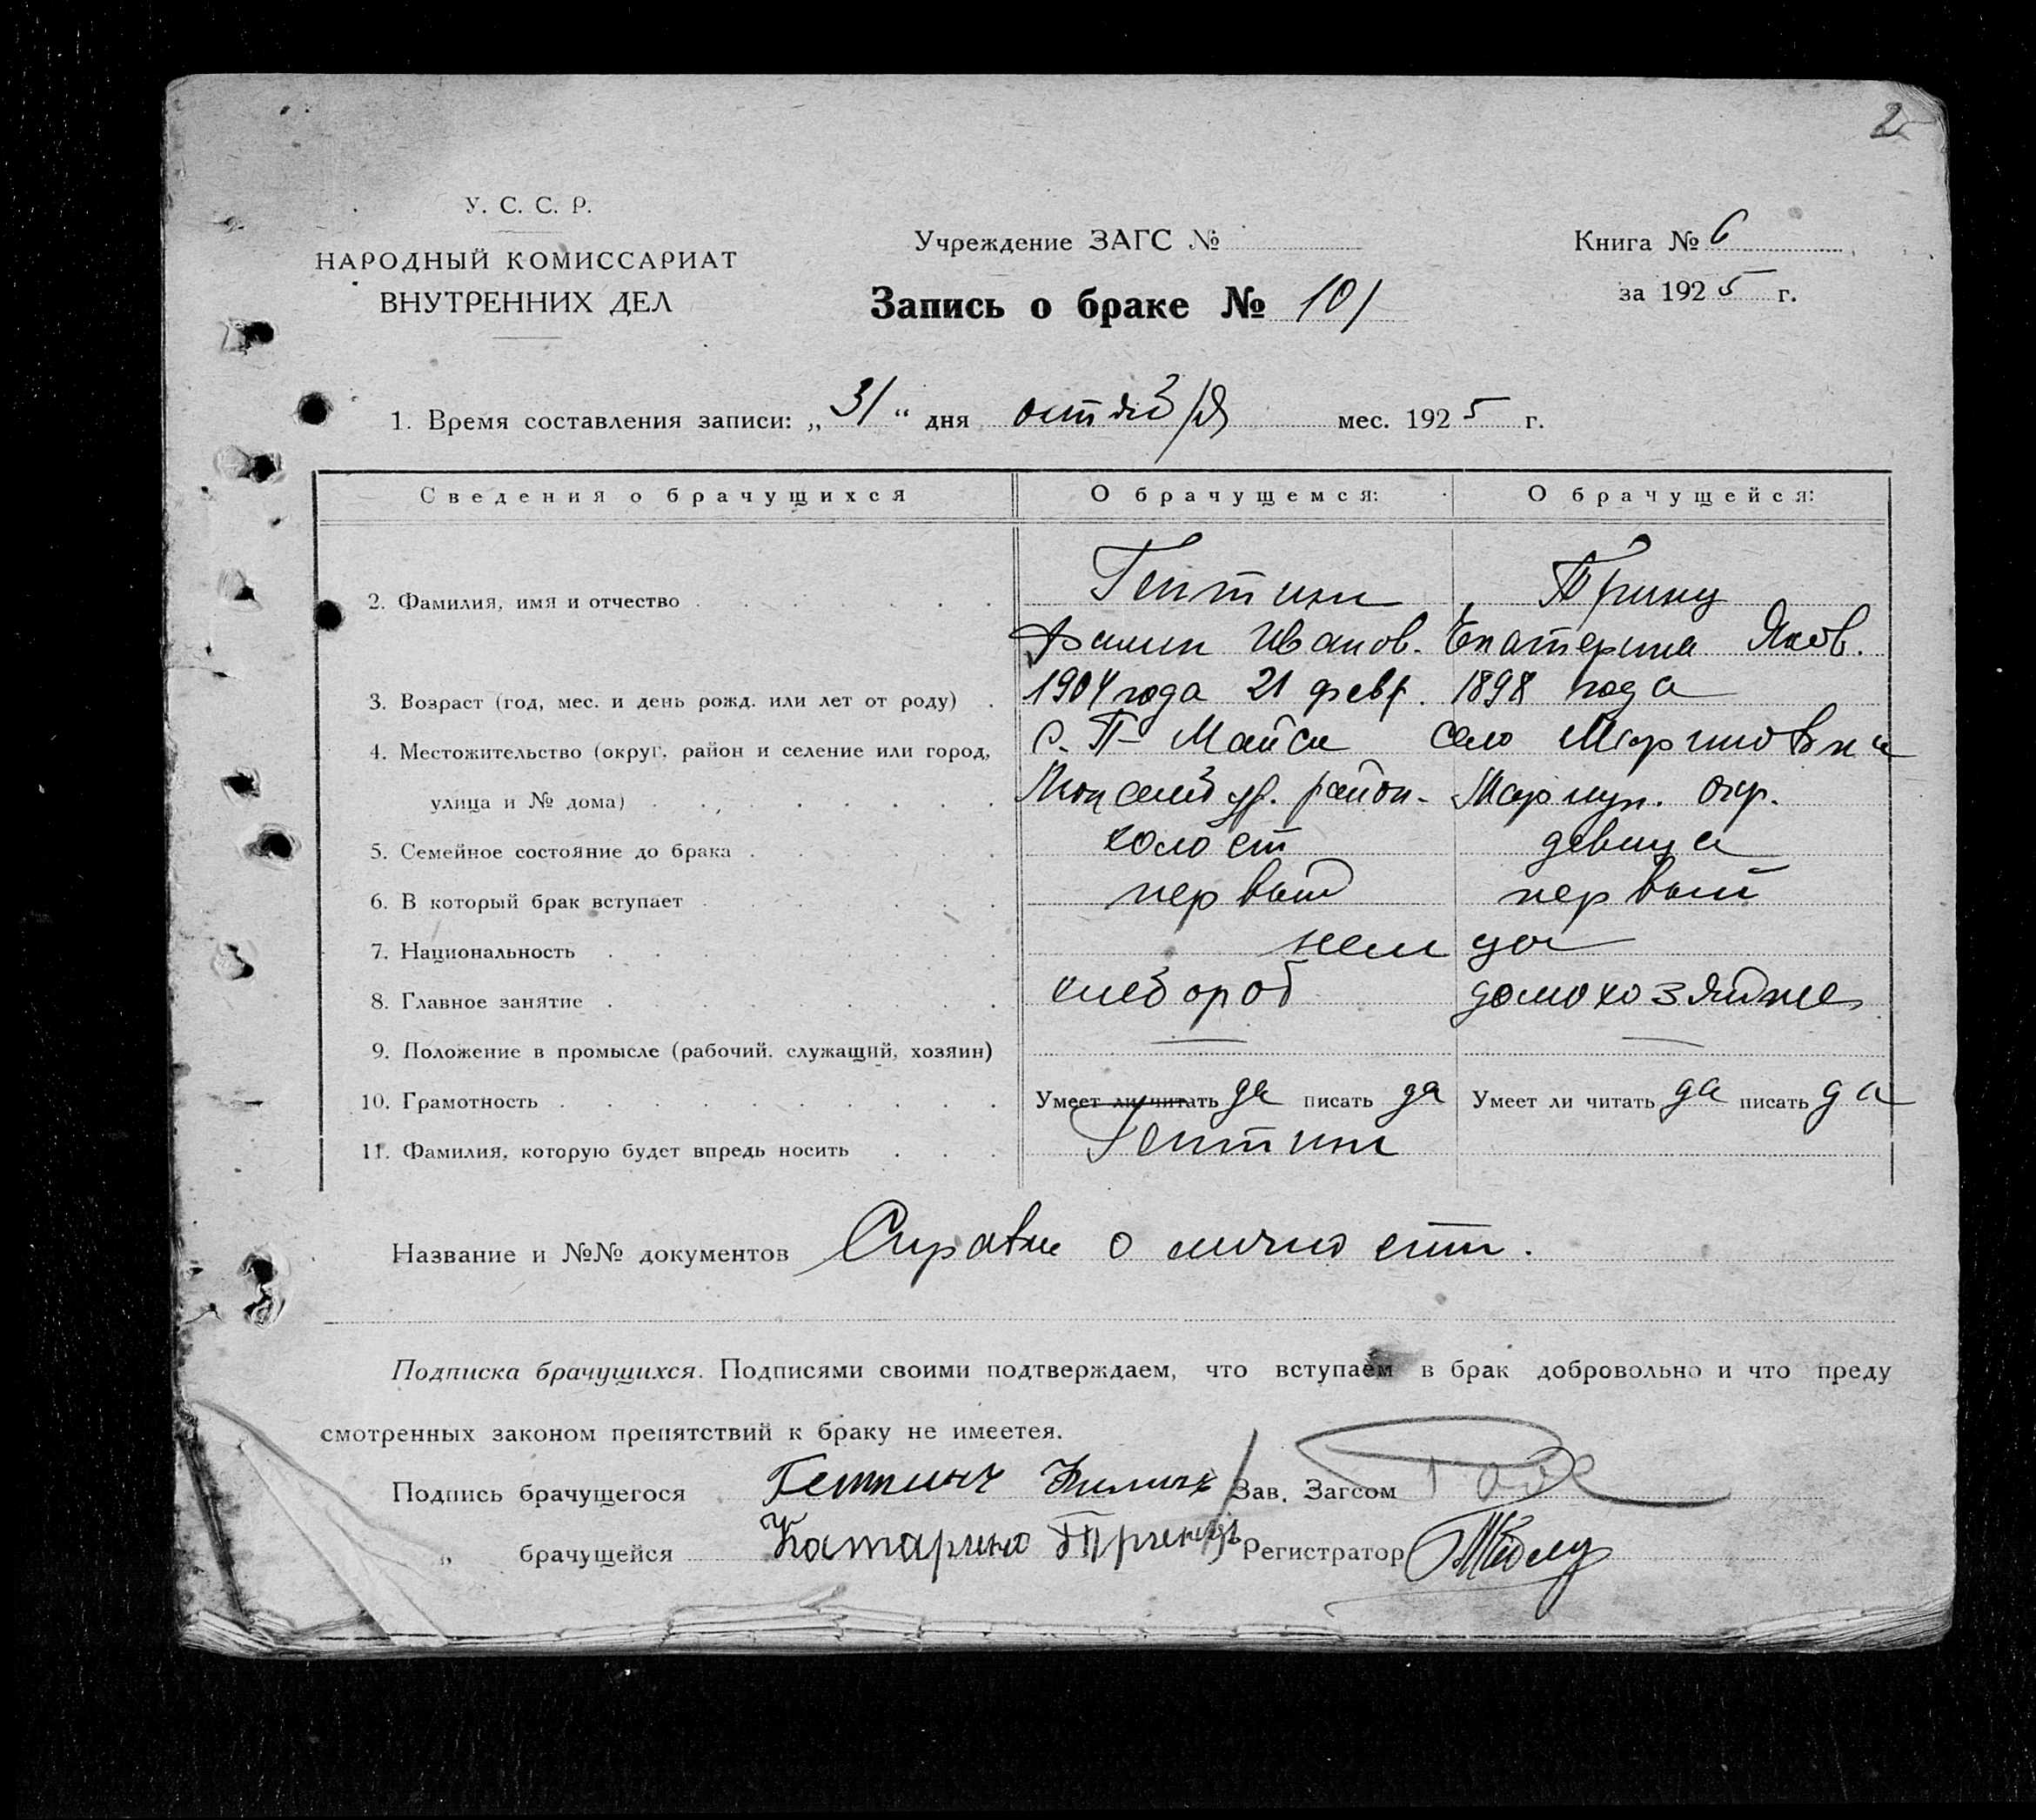 2
У. С. С. Р.
НАРОДНЫЙ КОМИССАРИАТ
ВНУТРЕННИХ ДЕЛ
Учреждение ЗАГС №
Книга № 6
Запись о браке № 101
за 1925 г.
1. Время составления записи: „31“ дня октября мес. 1925 г.
Сведения о брачущихся О брачущемся: О брачущейся:
2. Фамилия, имя и отчество Гептинг
Иванов. Екатерина Яков.
3. Возраст (год, мес. и день рожд. или лет от роду) 1904 года 21 февр. 1898 года
4. Местожительство (округ, район и селение или город, с. Майск село Мартиновка
улица и № дома) район. Мариуп. окр.
5. Семейное состояние до брака холост девица
6. В который брак вступает первый первый
7. Национальность немцы
8. Главное занятие хлебороб домохозяйка
9. Положение в промысле (рабочий, служащий, хозяин) — —
10. Грамотность Умеет ли читать да писать да Умеет ли читать да писать да
11. Фамилия, которую будет впредь носить Гептинг
Название и №№ документов Справки о личности.
Подписка брачущихся. Подписями своими подтверждаем, что вступаем в брак добровольно и что преду
смотренных законом препятствий к браку не имеетея.
Подпись брачущегося Гептинг Зав. Загсом
„ брачущейся Катарина Регистратор